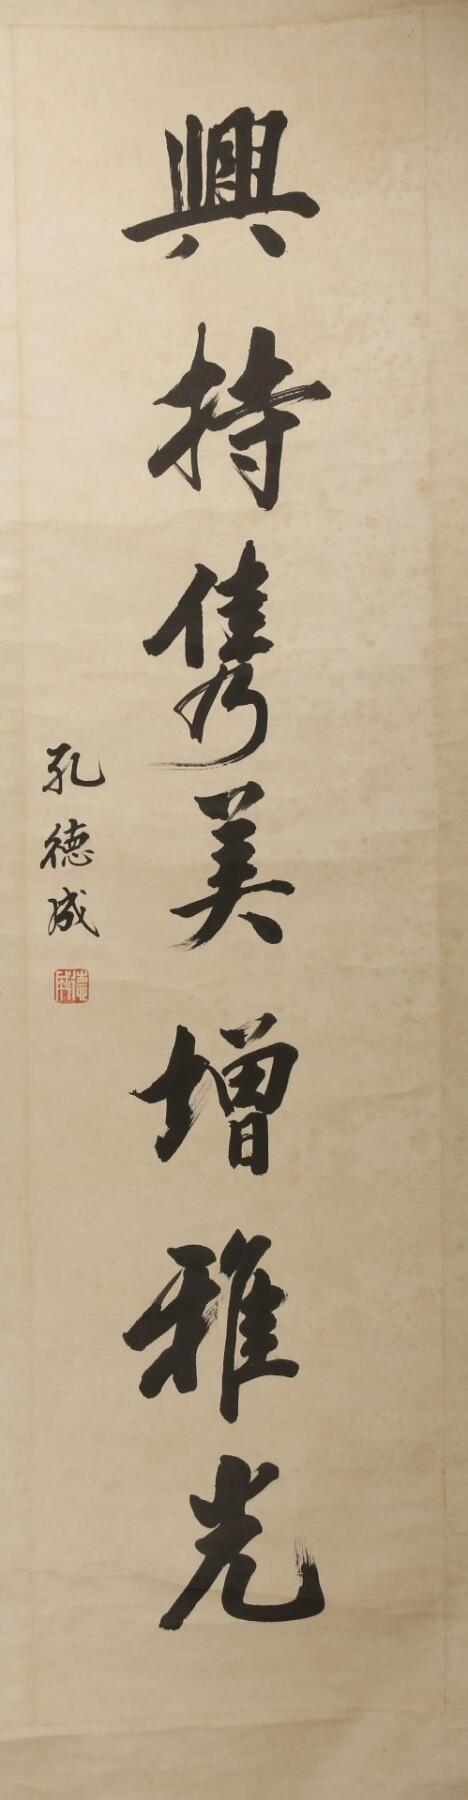 興持雋美增雅光
孔德成